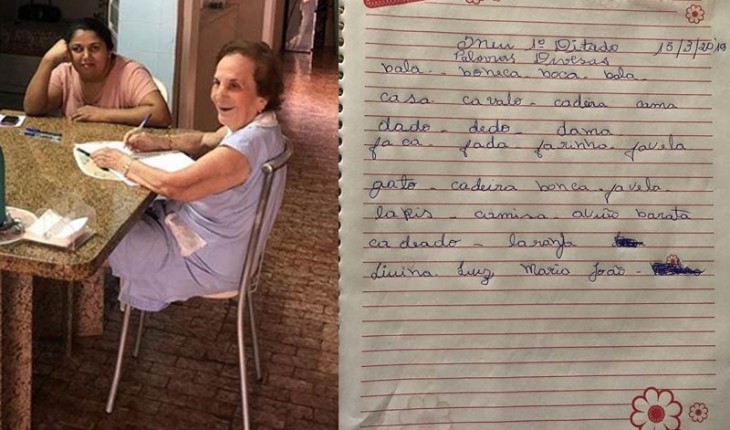 Meu 1º Ditado 15/3/2019
Palavras Diversas
bala - boneca boca bola
casa cavalo - cadeira cama
dado - dedo - dama
faca fada farinha favela
gato - cadeira bonca favela
lapis - camisa avião barata
cadeado - laranja
Divina Luz Maria João -